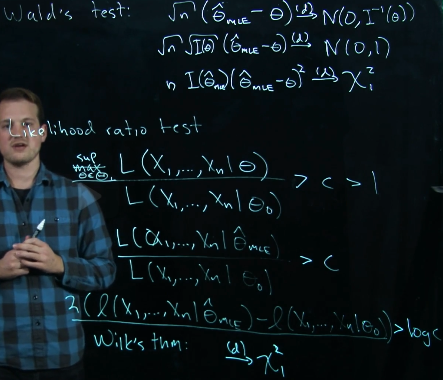 Wald's test: √n (θ̂_MLE − θ) →(d) N(0, I⁻¹(θ))
√n √I(θ) (θ̂_MLE − θ) →(d) N(0, 1)
n I(θ̂_MLE)(θ̂_MLE − θ)² →(d) χ²₁
Likelihood ratio test
sup
max θ∈Θ L(X₁,..., Xₙ | θ)
L(X₁,..., Xₙ | θ₀) > c > 1
L(X₁,..., Xₙ | θ̂_MLE)
L(X₁,..., Xₙ | θ₀) > c
2(ℓ(X₁,..., Xₙ | θ̂_MLE) − ℓ(X₁,..., Xₙ | θ₀)) > log c
Wilk's thm: →(d) χ²₁